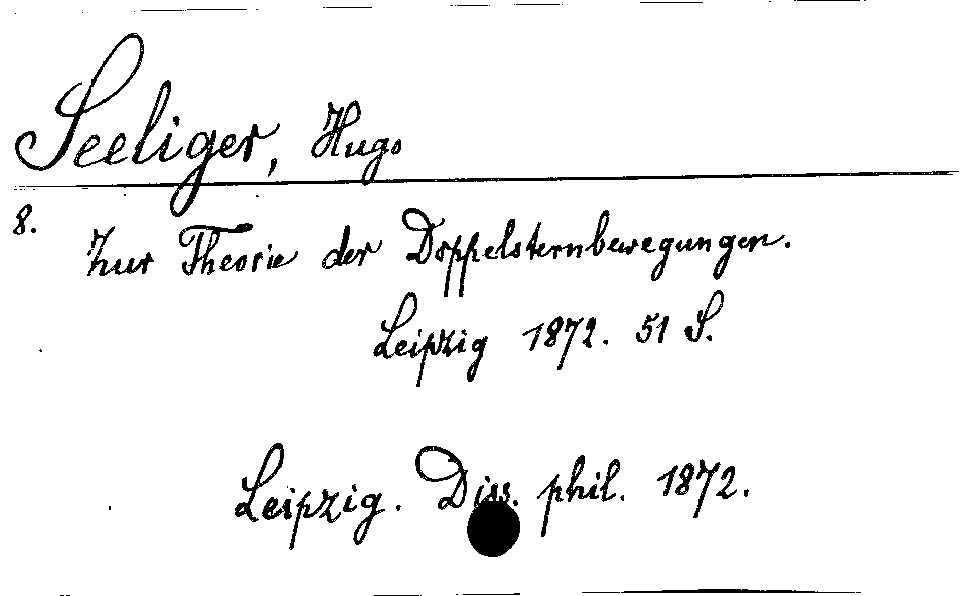 Seeliger, Hugo
8.
Zur Theorie der Doppelsternbewegungen.
Leipzig 1872. 51 S.
Leipzig. Diss. phil. 1872.